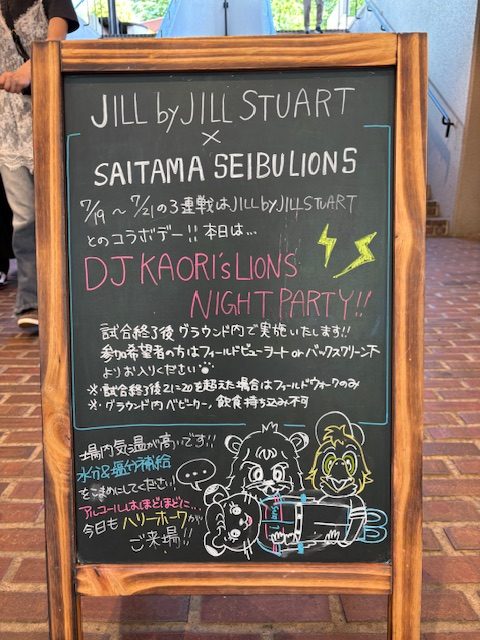 JILL by JILL STUART
×
SAITAMA SEIBU LIONS
7/19 ～ 7/21の3連戦はJILL by JILL STUART
とのコラボデー!! 本日は…
DJ KAORI's LIONS
NIGHT PARTY!!
試合終了後グラウンド内で実施いたします!!
参加希望者の方はフィールドビューシート or バックスクリーン下
よりお入りください
※試合終了後21:20を超えた場合はフィールドウォークのみ
※グラウンド内ベビーカー、飲食持ち込み不可
場内気温が高いです!!
水分&塩分補給
をこまめにしてください!
アルコールはほどほどに…
今日もハリーホークが
ご来場!!